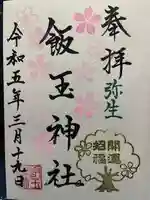 奉拝
弥生
飯玉神社
令和五年三月十九日
開運
招福